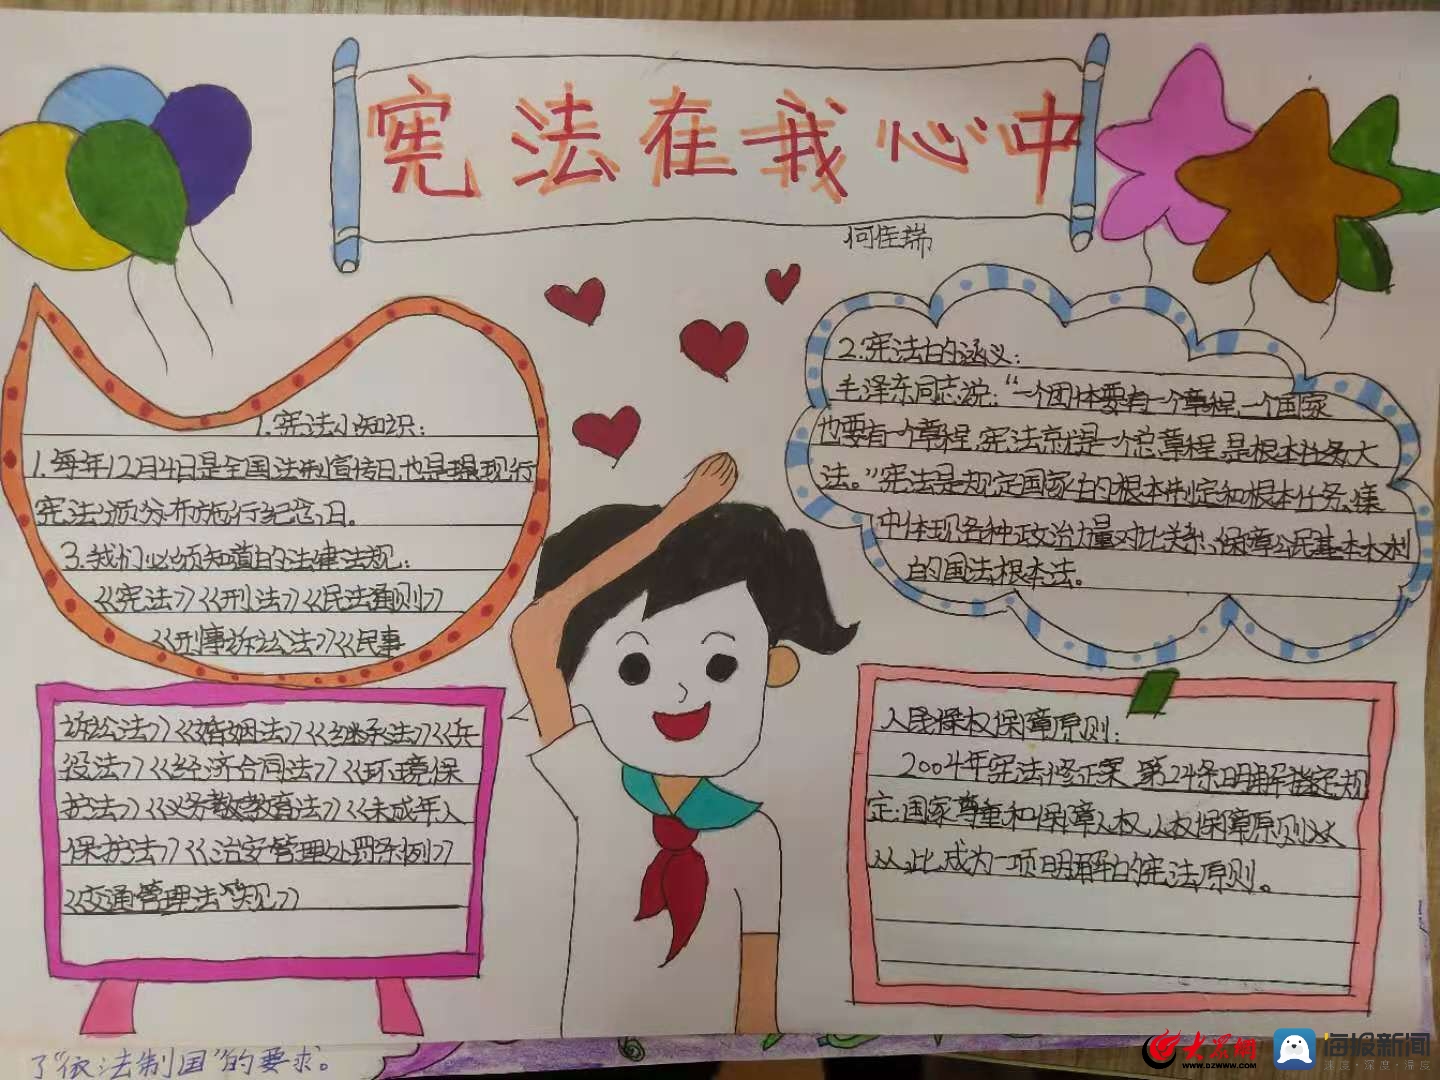 宪法在我心中
何佳瑞
1.宪法小知识:
1.每年12月4日是全国法制宣传日,也是现行
宪法颁分布施行纪念日。
3.我们必须知道的法律法规:
《宪法》《刑法》《民法通则》
《刑事诉讼法》《民事
诉讼法》《婚姻法》《继承法》《兵
役法》《经济合同法》《环境保
护法》《义务教育法》《未成年人
保护法》《治安管理处罚条例》
《交通管理法规》
2.宪法的涵义:
毛泽东同志说:“一个团体要有一个章程,一个国家
也要有一个章程,宪法就是一个总章程,是根本大
法。”宪法是规定国家的根本制定和根本任务,集
中体现各种政治力量对比关系、保障公民基本权利
的国法根本法。
人民保权保障原则:
2004年宪法修正案,第24条明解指定规
定:国家尊重和保障人权,人权保障原则
从此成为一项明解的宪法原则。
了“依法制国”的要求。
大众网
www.dzwww.com
海报新闻
速度·深度·温度